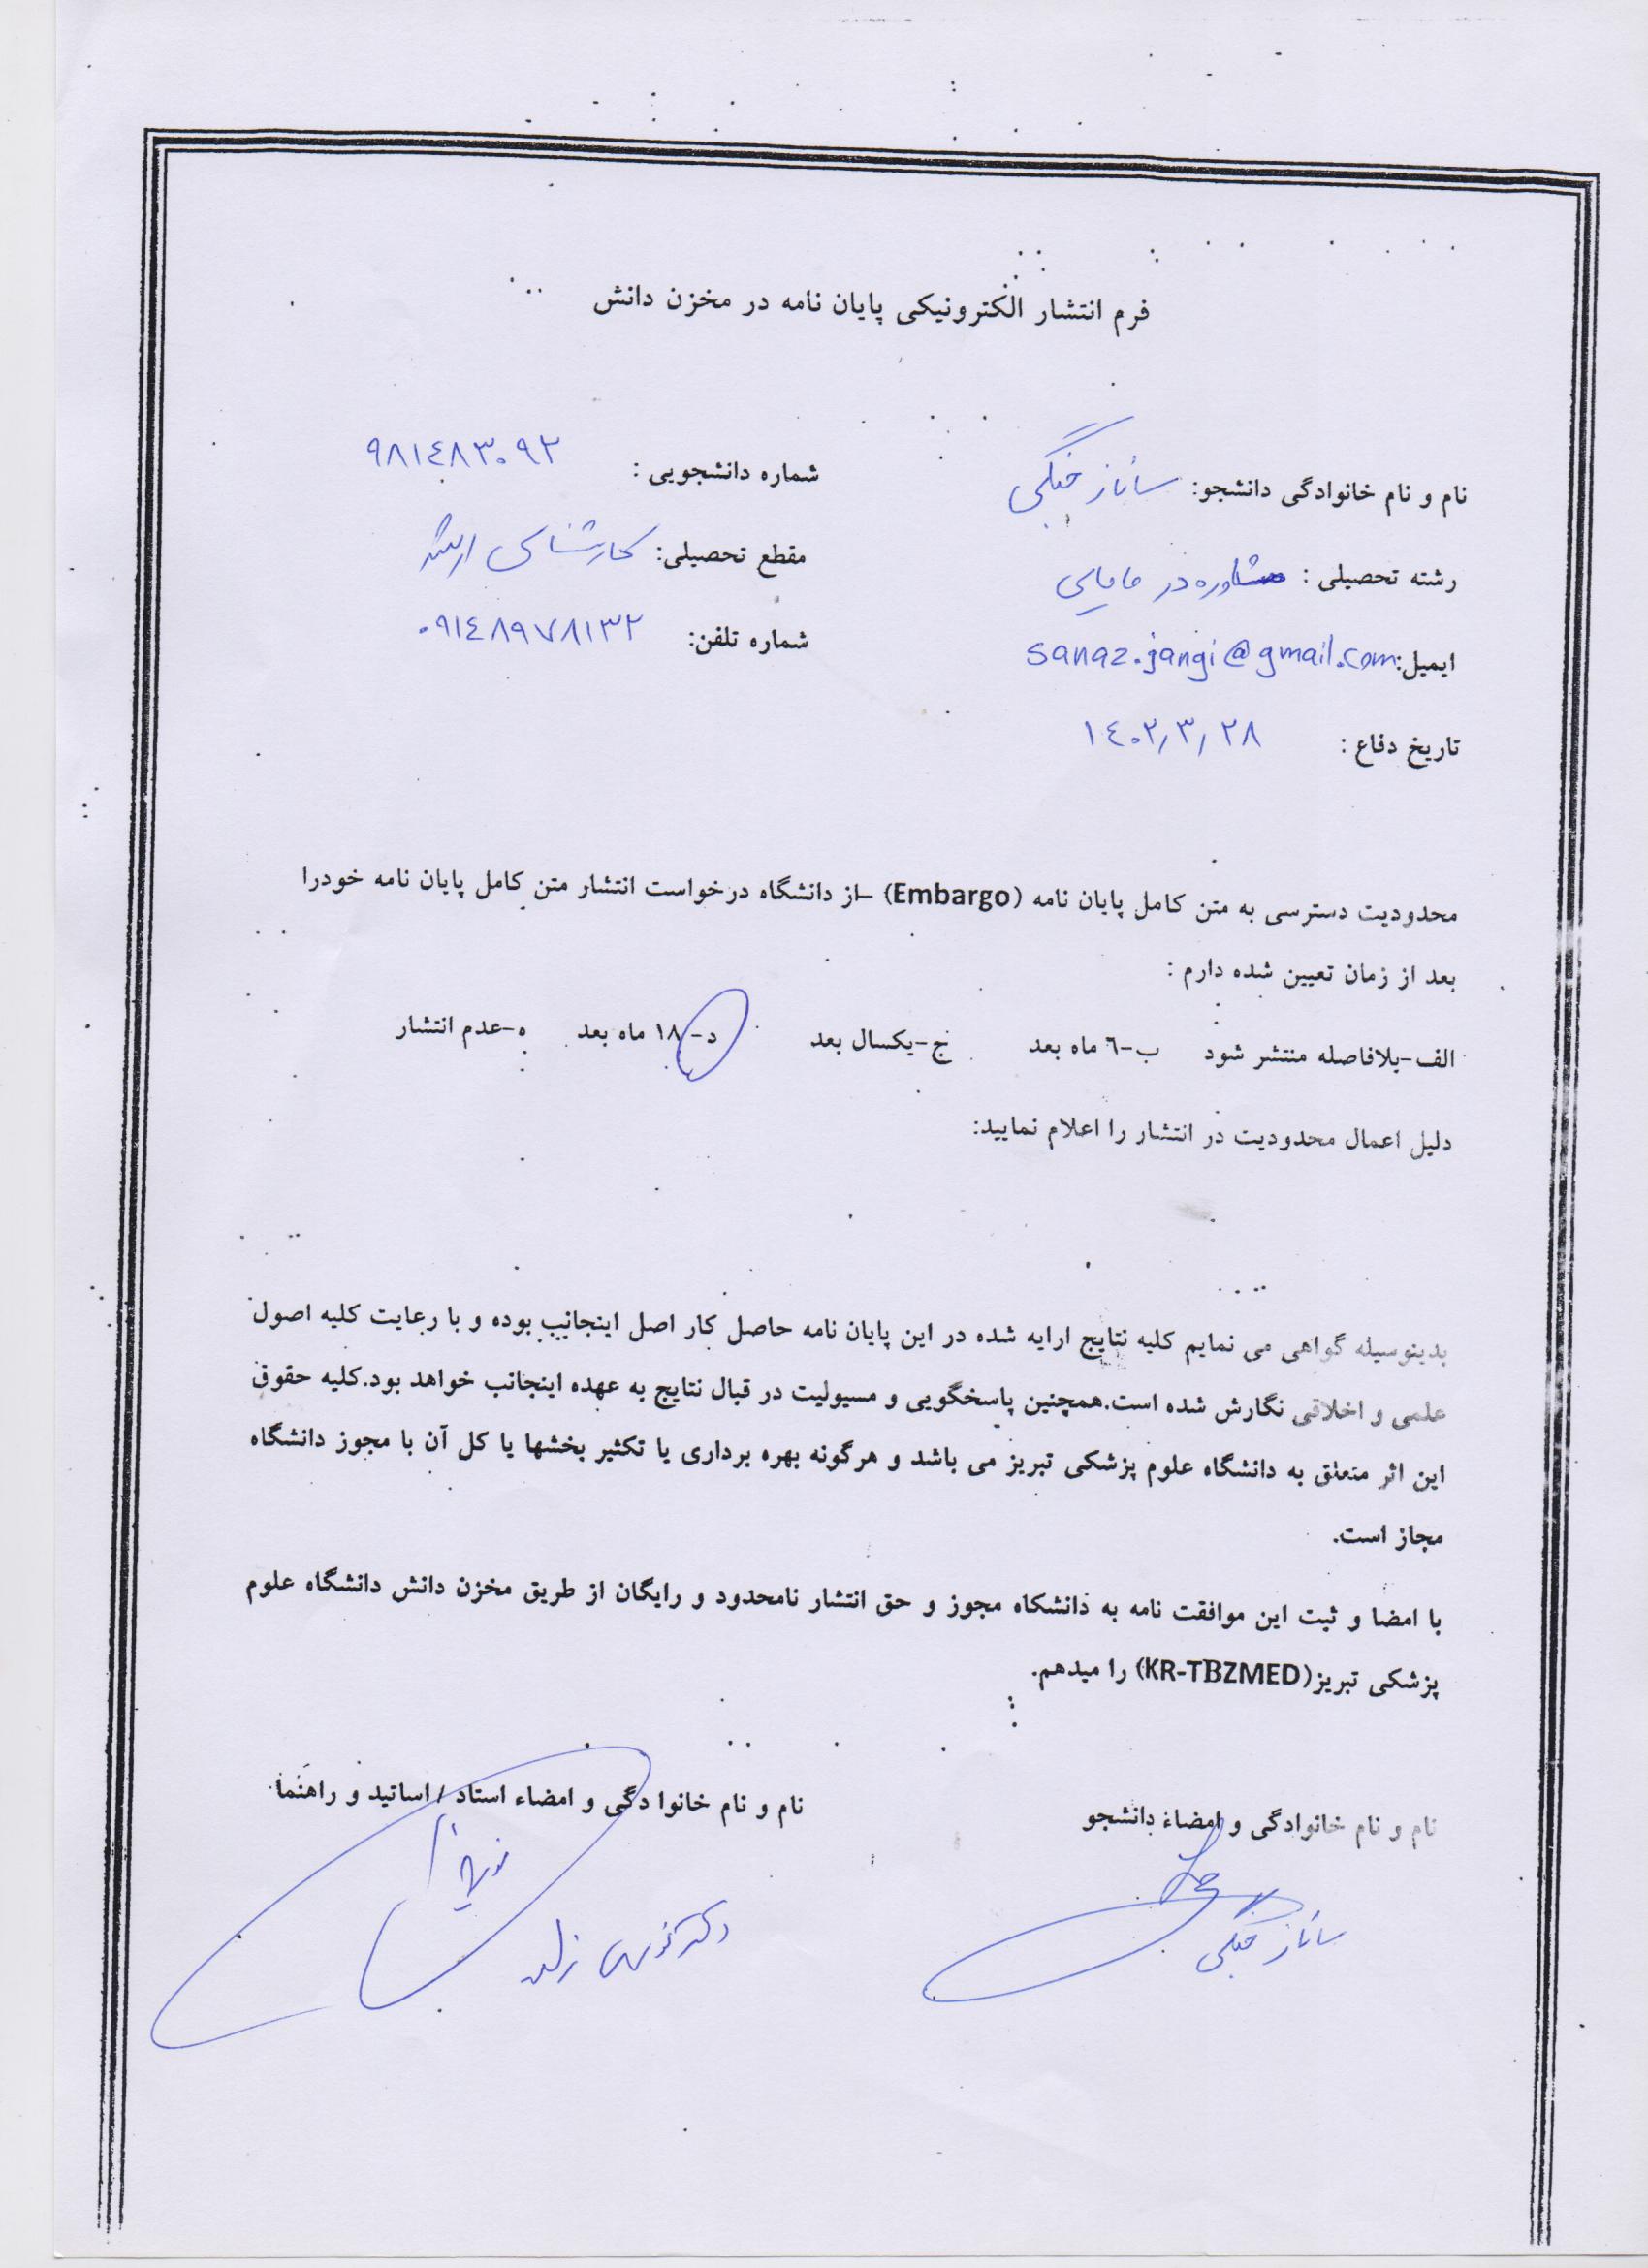 فرم انتشار الکترونیکی پایان نامه در مخزن دانش
نام و نام خانوادگی دانشجو: ساناز جنگی شماره دانشجویی : ۹۸۱٤۸۳۰۹۲
رشته تحصیلی : مشاوره در مامایی مقطع تحصیلی: کارشناسی ارشد
ایمیل: sanaz.jangi@gmail.com شماره تلفن: ۰۹۱٤۸۹۷۸۱۳۲
تاریخ دفاع : ۱٤۰۲/۳/۲۸
محدودیت دسترسی به متن کامل پایان نامه (Embargo) –از دانشگاه درخواست انتشار متن کامل پایان نامه خودرا
بعد از زمان تعیین شده دارم :
الف-بلافاصله منتشر شود ب-٦ ماه بعد ج-یکسال بعد د-۱۸ ماه بعد ه-عدم انتشار
دلیل اعمال محدودیت در انتشار را اعلام نمایید:
بدینوسیله گواهی می نمایم کلیه نتایج ارایه شده در این پایان نامه حاصل کار اصل اینجانب بوده و با رعایت کلیه اصول
علمی و اخلاقی نگارش شده است.همچنین پاسخگویی و مسیولیت در قبال نتایج به عهده اینجانب خواهد بود.کلیه حقوق
این اثر متعلق به دانشگاه علوم پزشکی تبریز می باشد و هرگونه بهره برداری یا تکثیر بخشها یا کل آن با مجوز دانشگاه
مجاز است.
با امضا و ثبت این موافقت نامه به دانشکاه مجوز و حق انتشار نامحدود و رایگان از طریق مخزن دانش دانشگاه علوم
پزشکی تبریز(KR-TBZMED) را میدهم.
نام و نام خانوادگی و امضاء دانشجو نام و نام خانوا دگی و امضاء استاد / اساتید و راهنما
ساناز جنگی دکتر